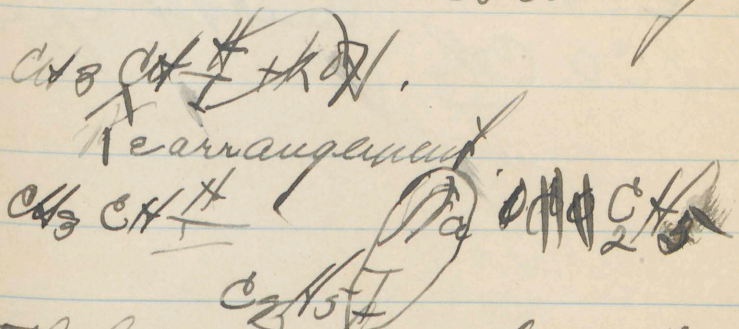 CH3 CH H I + KOH.
Rearrangement
CH3 CH H I Na C2H5
C2H5 I